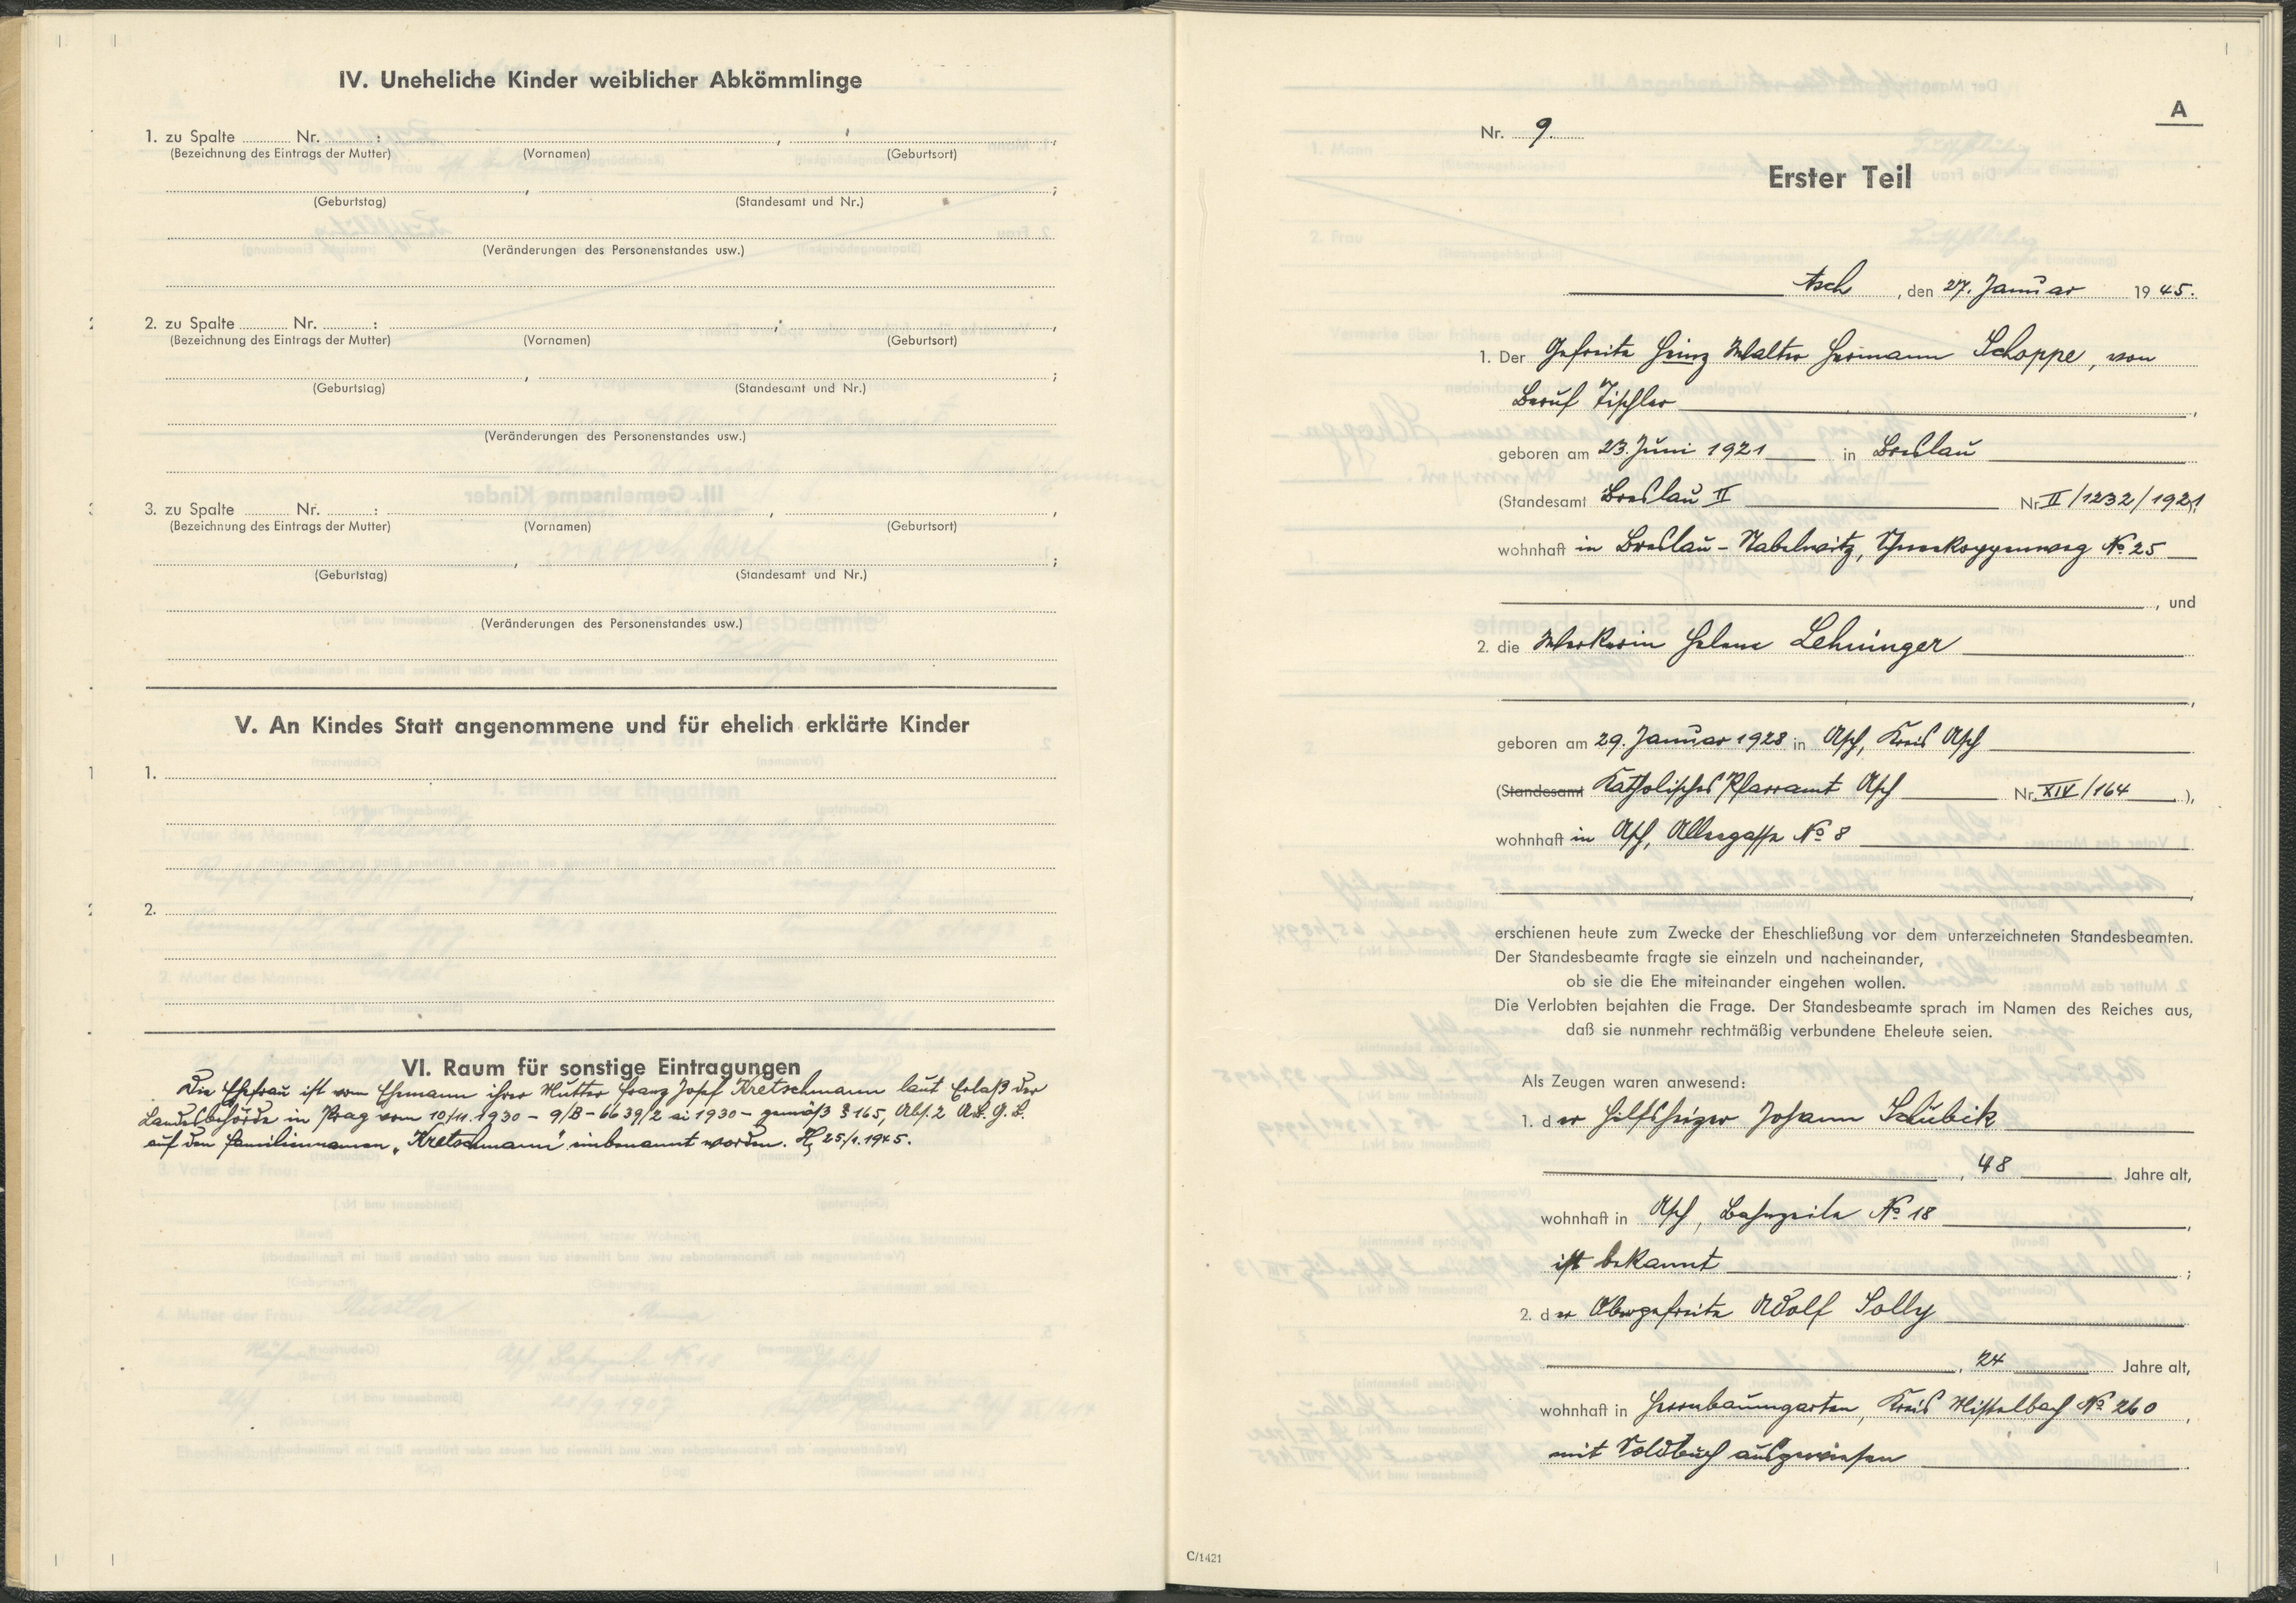 IV. Uneheliche Kinder weiblicher Abkömmlinge
1. zu Spalte ......... Nr. ......... :
(Bezeichnung des Eintrags der Mutter) (Vornamen) (Geburtsort)
(Geburtstag) (Standesamt und Nr.)
(Veränderungen des Personenstandes usw.)
2. zu Spalte ......... Nr. ......... :
(Bezeichnung des Eintrags der Mutter) (Vornamen) (Geburtsort)
(Geburtstag) (Standesamt und Nr.)
(Veränderungen des Personenstandes usw.)
3. zu Spalte ......... Nr. ......... :
(Bezeichnung des Eintrags der Mutter) (Vornamen) (Geburtsort)
(Geburtstag) (Standesamt und Nr.)
(Veränderungen des Personenstandes usw.)
V. An Kindes Statt angenommene und für ehelich erklärte Kinder
1.
2.
VI. Raum für sonstige Eintragungen
Die Ehefrau ist vom Ehemann ihrer Mutter Franz Josef Kretschmann laut Erlaß der
Landesbehörde in Prag vom 10/11.1930 - 9/B - 6639/2 ai 1930 - gemäß § 165, Abs. 2 A.B.G.B.
auf den Familiennamen „Kretschmann" einbenannt worden. 25/1.1945.
A
Nr. 9.
Erster Teil
Asch, den 27. Januar 1945.
1. Der Gefreite Heinz Walter Hermann Schoppe, von
Beruf Tischler
geboren am 23. Juni 1921 in Breslau
(Standesamt Breslau II Nr. II/1232/1921)
wohnhaft in Breslau - Stabelwitz, Schneekoppenweg No 25
, und
2. die Werkerin Helene Lehninger
geboren am 29. Januar 1928 in Asch, Kreis Asch
(Standesamt Katholisches Pfarramt Asch Nr. XIV/164),
wohnhaft in Asch, Allergasse No 8
erschienen heute zum Zwecke der Eheschließung vor dem unterzeichneten Standesbeamten.
Der Standesbeamte fragte sie einzeln und nacheinander,
ob sie die Ehe miteinander eingehen wollen.
Die Verlobten bejahten die Frage. Der Standesbeamte sprach im Namen des Reiches aus,
daß sie nunmehr rechtmäßig verbundene Eheleute seien.
Als Zeugen waren anwesend:
1. der Hilfsheizer Johann Schubik
, 48 Jahre alt,
wohnhaft in Asch, Bahnzeile No 18
ist bekannt ;
2. der Obergefreite Adolf Solly
, 24 Jahre alt,
wohnhaft in Herrnbaumgarten, Kreis Mistelbach No 260,
mit Soldbuch ausgewiesen
C/1421